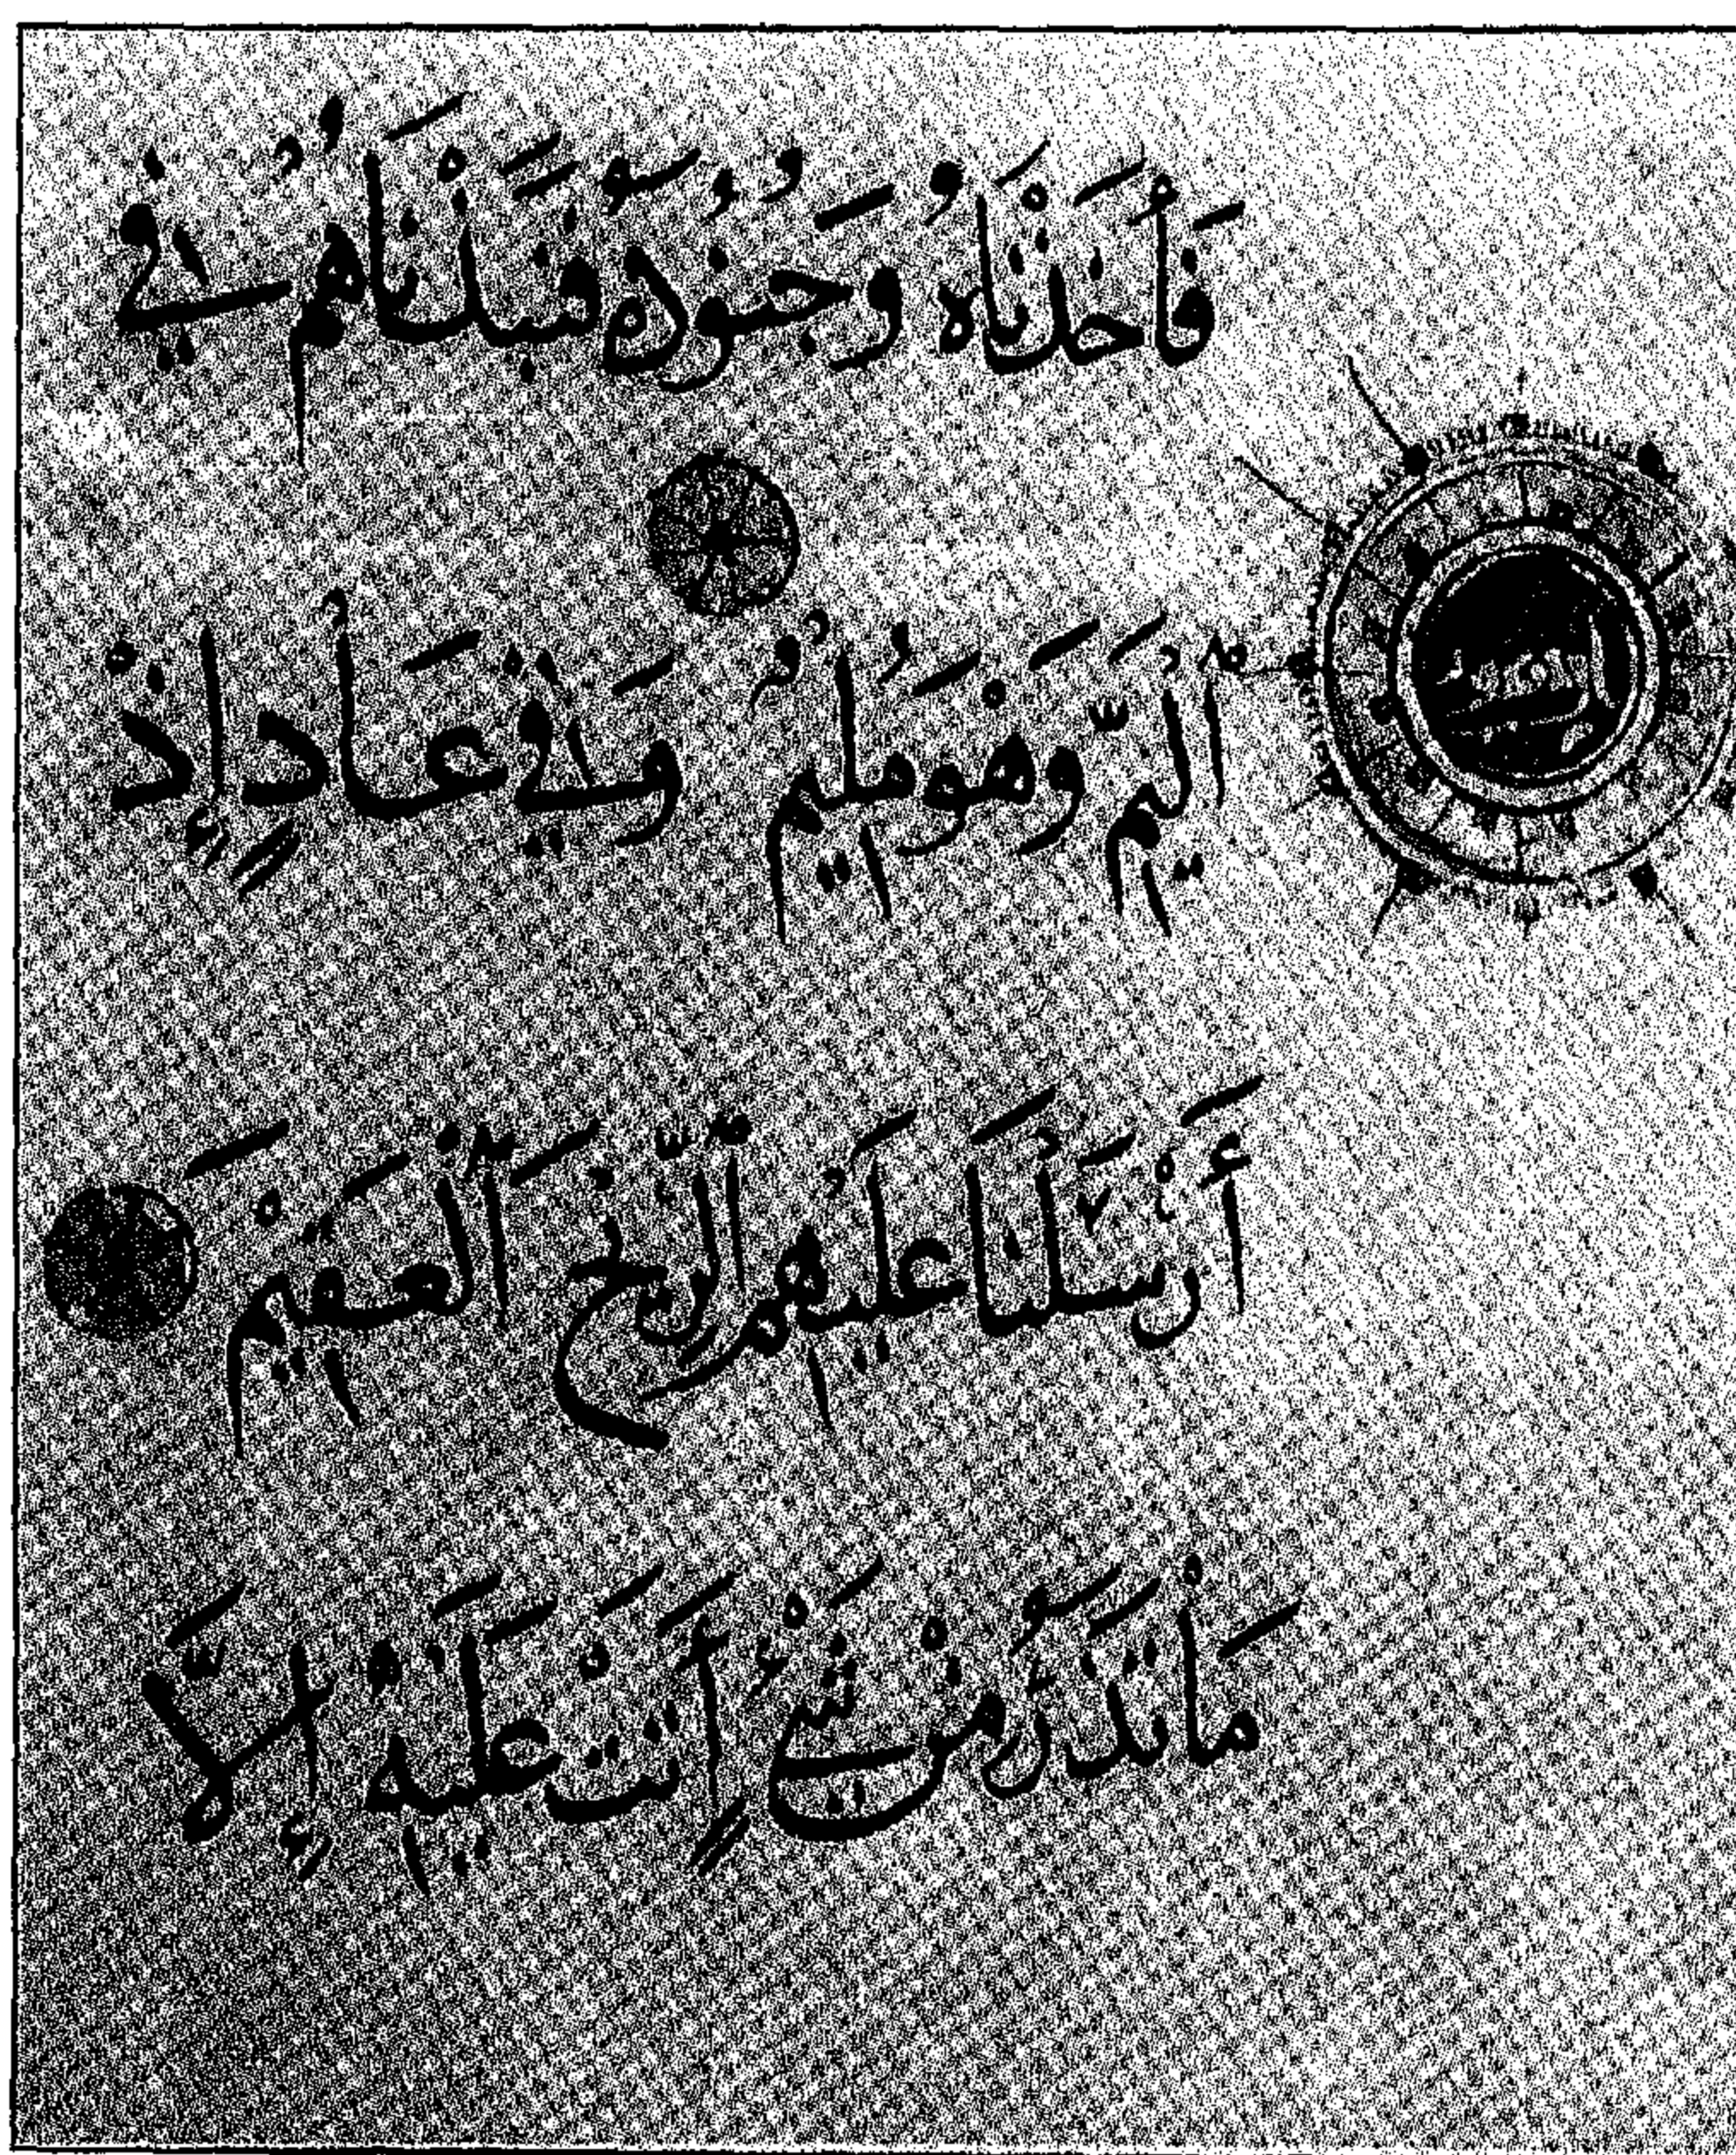 فَأَخَذْنَاهُ وَجُنُودَهُ فَنَبَذْنَاهُمْ فِي
اَلْيَمِّ وَهُوَ مُلِيمٌ وَفِي عَادٍ إِذْ
أَرْسَلْنَا عَلَيْهِمُ الرِّيحَ الْعَقِيْمَ
مَا تَذَرُ مِنْ شَيْءٍ أَتَتْ عَلَيْهِ إِلَّا